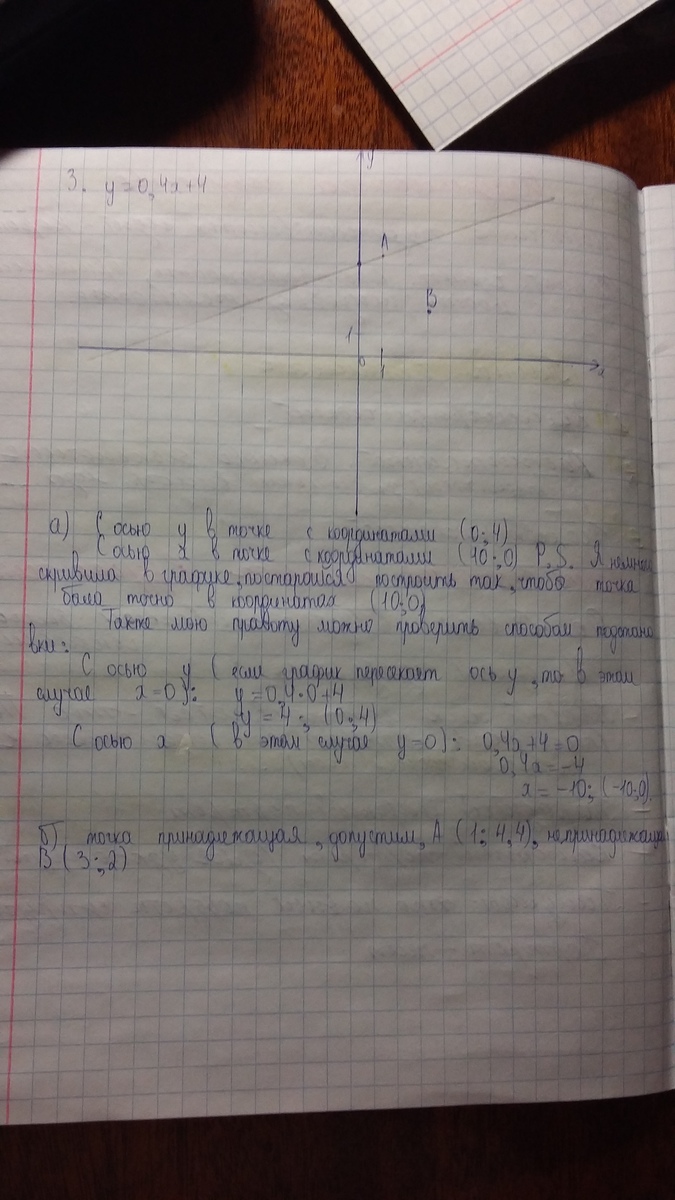 3. y=0,4x+4
y
A
B
1
0
1
x
а) С осью y в точке с координатами (0;4)
С осью x в точке с координатами (10;0) P.S. Я немного
скривила в графике, постарайся построить так, чтобы точка
была точно в координатах (10;0)
Также мою правоту можно проверить способом подстано
вки:
С осью y (если график пересекает ось y, то в этом
случае x=0): y=0,4·0+4
y=4; (0;4)
С осью x (в этом случае y=0): 0,4x+4=0
0,4x=-4
x=-10; (-10;0)
б) точка принадлежащая, допустим, A (1; 4,4), непринадлежащая
B (3;2)